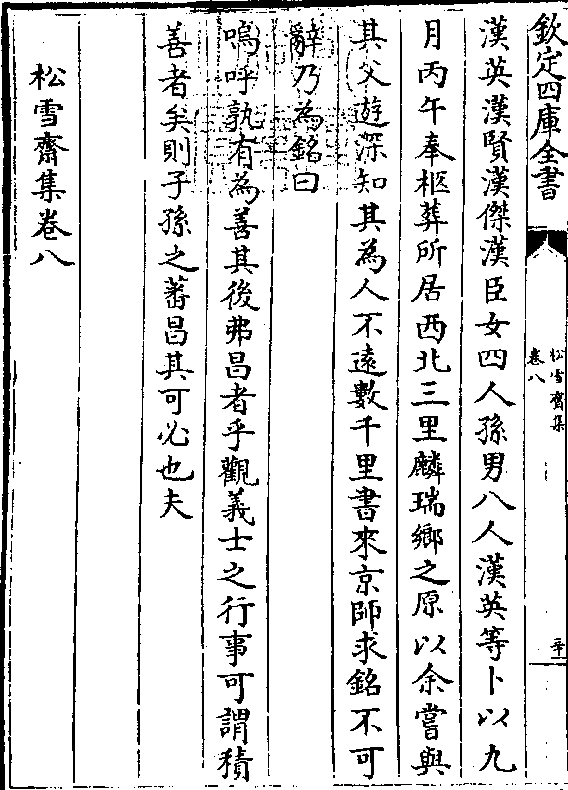 欽定四庫全書
松雪齋集
卷八
漢英漢賢漢傑漢臣女四人孫男八人漢英等卜以九
月丙午奉柩葬所居西北三里麟瑞鄉之原以余嘗與
其父遊深知其為人不遠數千里書來京師求銘不可
辭乃為銘曰
嗚呼孰有為善其後弗昌者乎觀義士之行事可謂積
善者矣則子孫之蕃昌其可必也夫
松雪齋集卷八